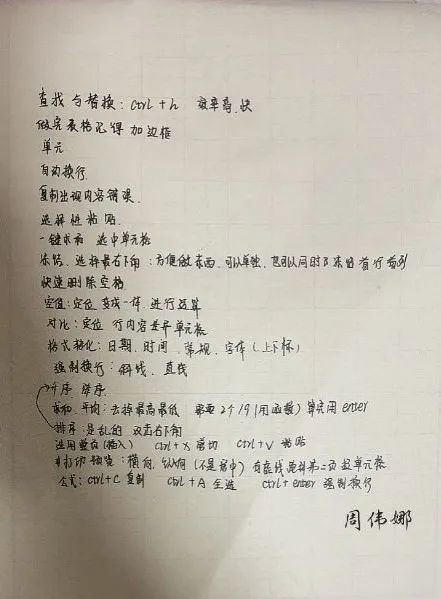 查找与替换：Ctrl + h 效率高、快
做完表格记得加边框
单元
自动换行
复制出现内容错误
选择性粘贴
一键求和 选中单元格
冻结 选择最右下角：方便做东西，可以单独，也可以同时冻结首行首列
快速删除空格
空值：定位 变成一样 进行运算
对比：定位 行内容差异单元格
格式转化：日期、时间、常规、字体（上下标）
强制换行：斜线、直线
升序 降序
求和、平均：去掉最高最低 需要2个19（用函数）算完用enter
排序：是乱的 双击右下角
(插入) Ctrl + X 剪切 Ctrl + V 粘贴
打印预览：横向、纵向（不是居中）有虚线 第二页 单元格
公式：ctrl + C 复制 Ctrl + A 全选 Ctrl + enter 强制换行
周伟娜